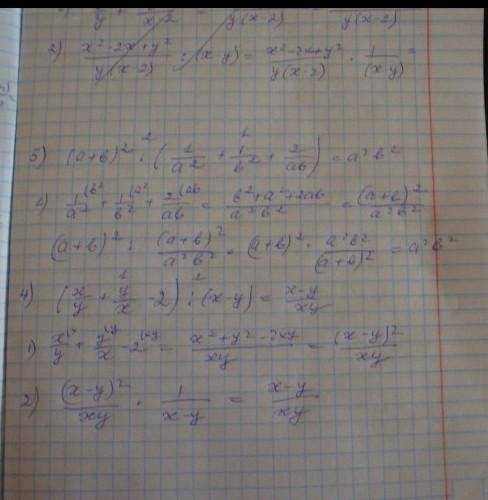 y + x-2 = y(x-2) y(x-2)
2) x²-2x+y² / y(x-2) : (x-y) = x²-2x+y² / y(x-2) · 1/(x-y) =
5) (a+b)² : (1/a² + 1/b² + 2/ab) = a²b²
1) 1/a² + 1/b² + 2/ab = b²+a²+2ab / a²b² = (a+b)² / a²b²
(a+b)² : (a+b)² / a²b² = (a+b)² · a²b² / (a+b)² = a²b²
4) (x/y + y/x - 2) : (x-y) = x-y / xy
1) x/y + y/x - 2 = x²+y²-2xy / xy = (x-y)² / xy
2) (x-y)² / xy · 1 / x-y = x-y / xy